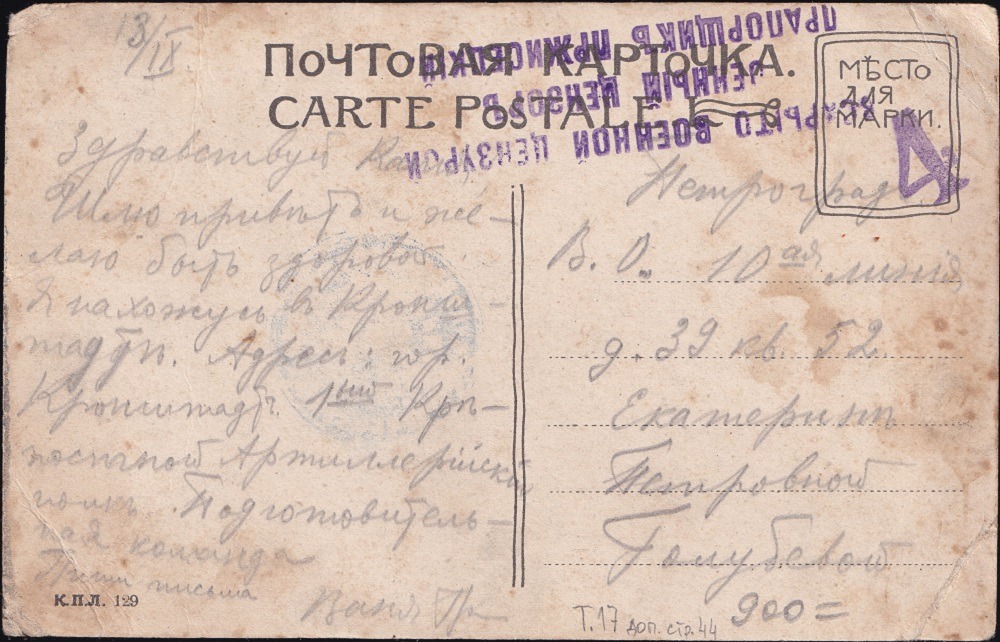 13/IX
ПОЧТОВАЯ КАРТОЧКА.
CARTE POSTALE
МѢСТО
ДЛЯ
МАРКИ.
ВСКРЫТО ВОЕННОЙ ЦЕНЗУРОЙ
ВОЕННЫЙ ЦЕНЗОРЪ
ПРАПОРЩИКЪ
4
Здравствуй
Шлю привѣтъ и же-
лаю быть здоровой.
Я нахожусь въ Кронш-
тадтѣ. Адресъ: гор.
Кронштадтъ 1ый Крѣ-
постной Артиллерійскій
полкъ. Подготовитель-
ная команда
Пиши письма
Ваня
К.П.Л. 129
Петроградъ
В. О. 10ая линія
д. 39 кв. 52
Екатеринѣ
Петровной
Голубевой
900=
Т.17 доп. стр. 44